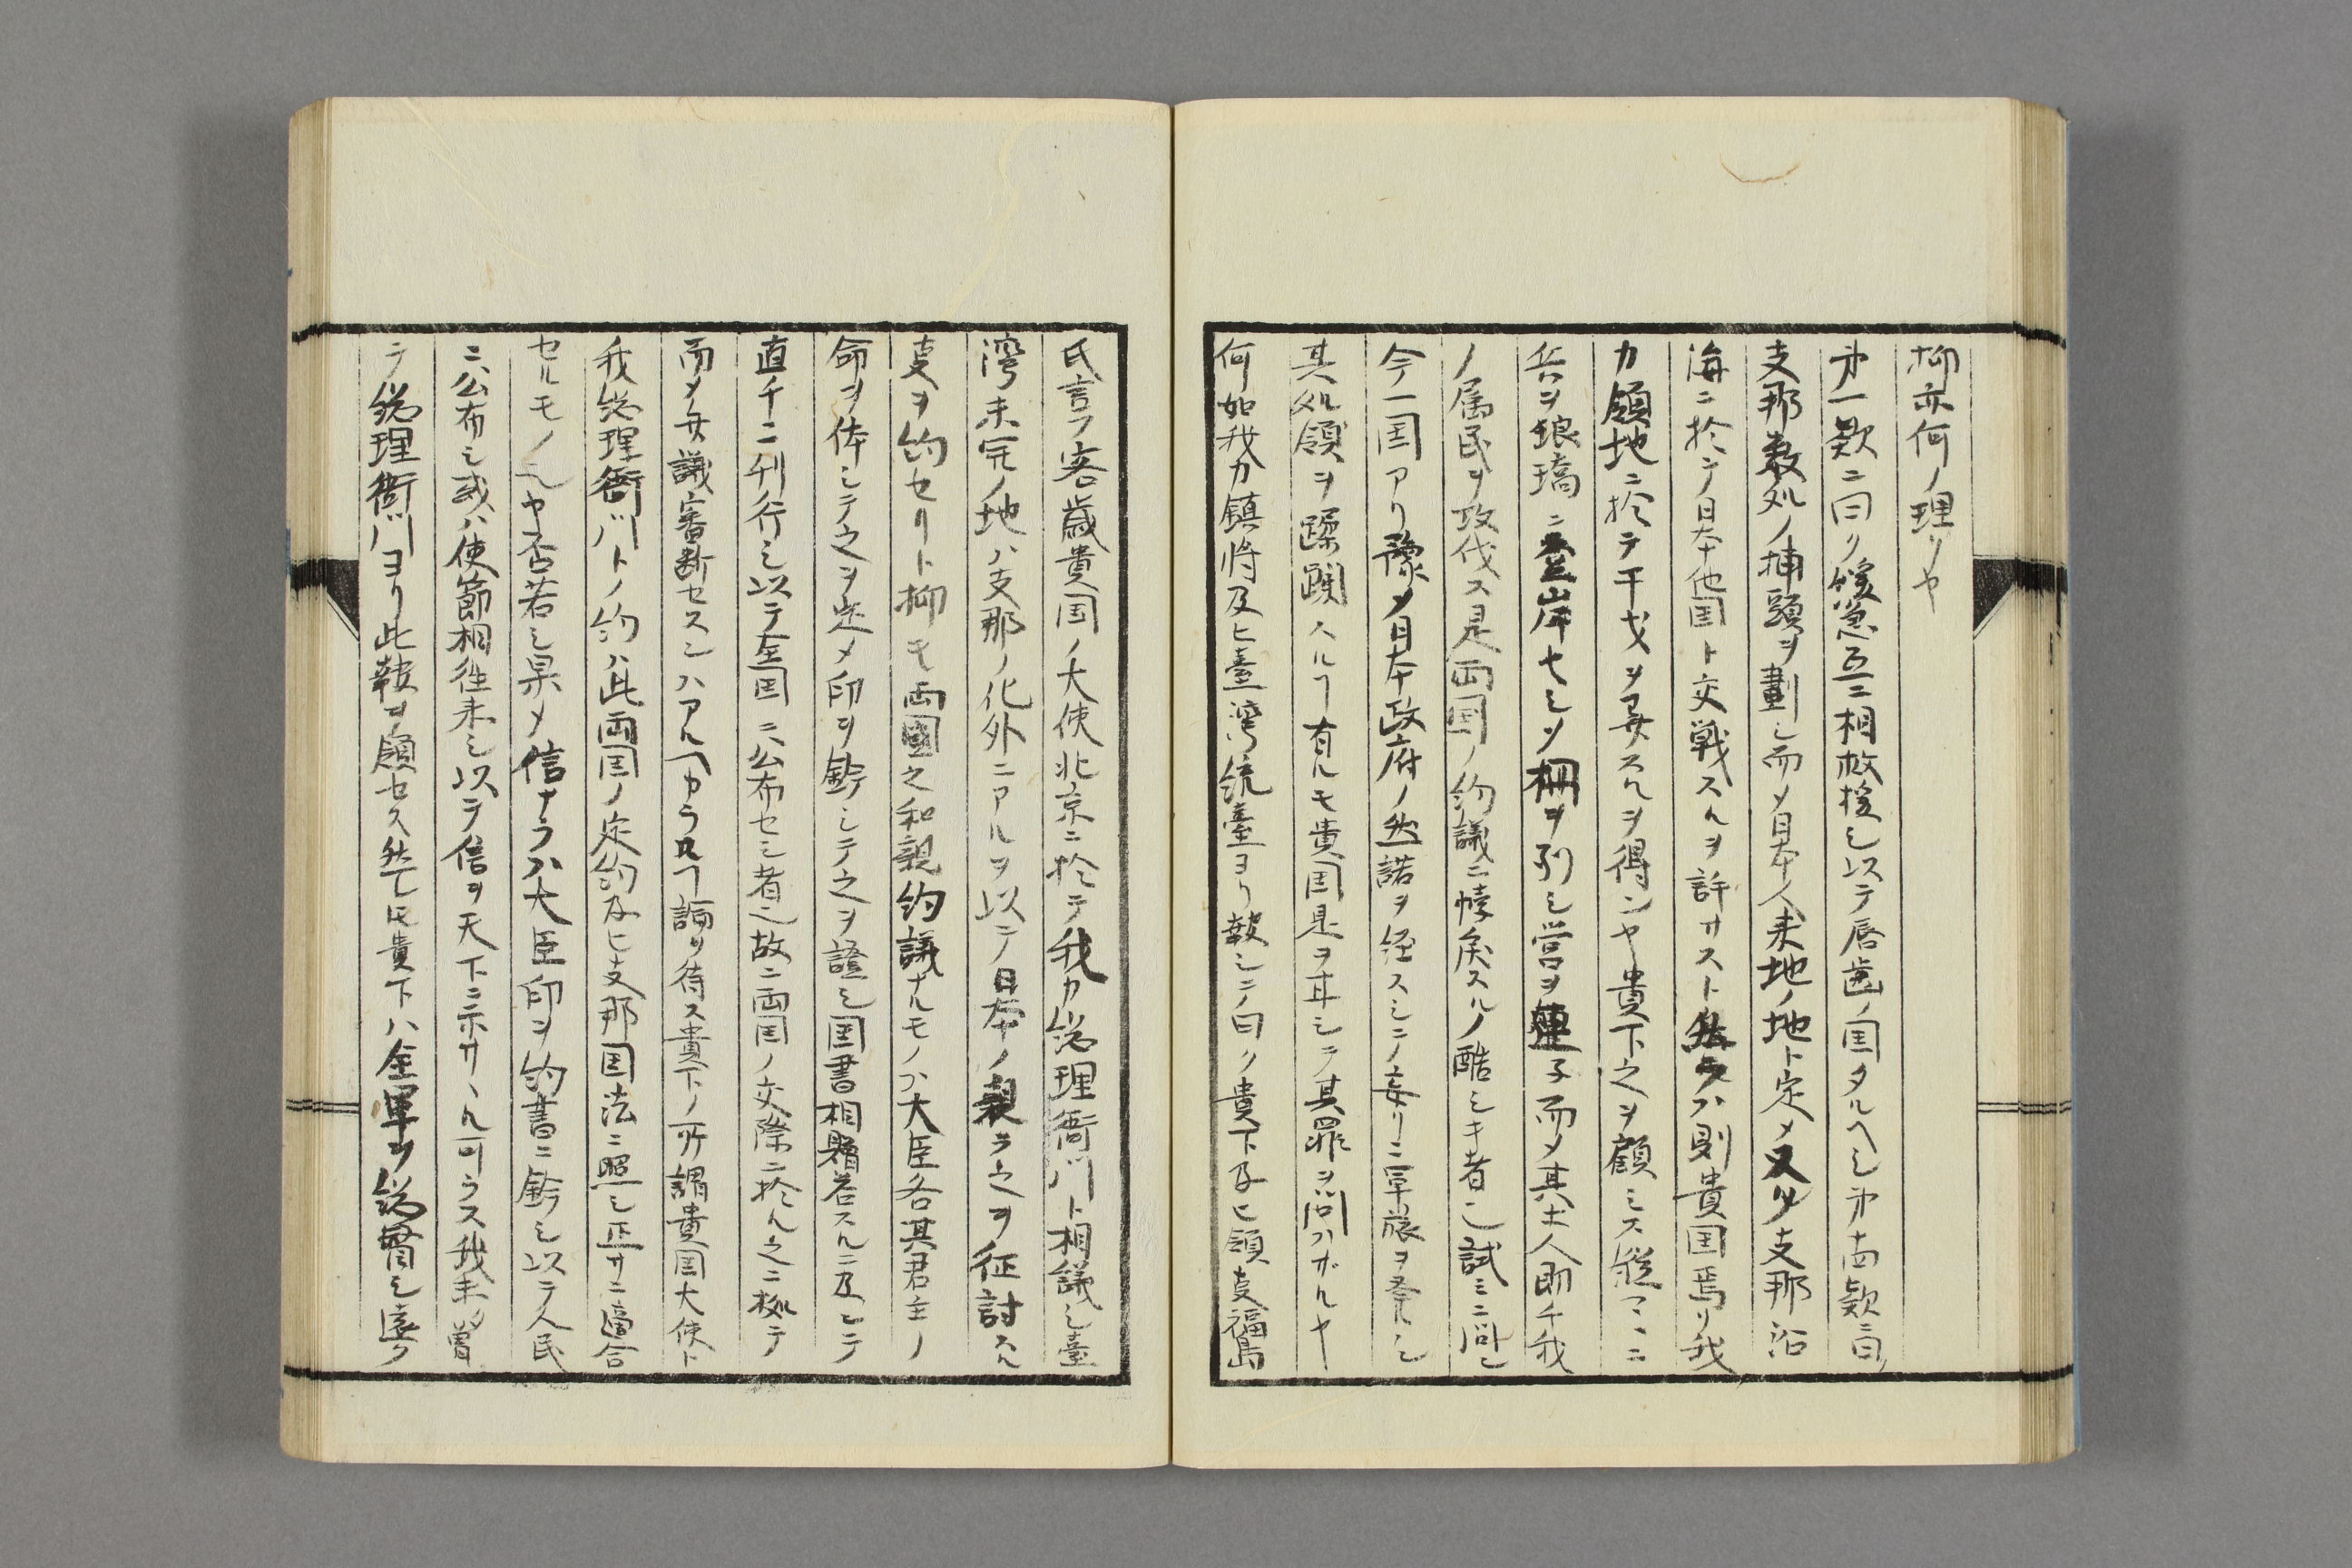 抑亦何ノ理リヤ
第一款ニ曰ク緩急互ニ相救援シ以テ唇歯ノ国タルヘシ第十四款ニ曰
支那数処ノ埔頭ヲ劃シ而メ日本人来地ノ地ト定メ又タ支那沿
海ニ於テ日本他国ト交戦スルヲ許サスト然ラハ則貴国焉リ我
カ領地ニ於テ干戈ヲ弄スルヲ得ンヤ貴下之ヲ顧ミス縦マヽニ
兵ヲ琅𤩝ニ登岸セシメ柵ヲ列シ営ヲ連子而メ其土人即チ我
ノ属民ヲ攻伐ス是両国ノ約議ニ悖戻スルノ酷シキ者也試ミニ問フ
今一国アリ豫メ日本政府ノ然諾ヲ経スシテ妄リニ軍旅ヲ発シ
其処領ヲ蹂躙スルヿ有ルモ貴国是ヲ甘シテ其罪ヲ問ハザルヤ
何如我カ鎮将及ヒ臺湾統臺ヨリ報シテ曰ク貴下及ヒ領事福島
氏言フ客歳貴国ノ大使北京ニ於テ我カ総理衙門ト相議シ臺
湾未完ノ地ハ支那ノ化外ニアルヲ以テ日本ノ親ラ之ヲ征討スル
事ヲ約セリト抑モ両國之和親約議ナルモノハ大臣各其君主ノ
命ヲ体シテ之ヲ定メ印ヲ鈐シテ之ヲ證シ国書相賜答スルニ及ヒテ
直チニ刊行シ以テ全国ニ公布セシ者也故ニ両国ノ交際ニ於ル之ニ拠テ
而メ弁議審断セスンハアルヘカラス今諭リ待ス貴下ノ所謂貴国大使ト
我総理衙門トノ約ハ此両国ノ定約及ヒ支那国法ニ照シ正サニ適合
セルモノ也ヤ否若シ果メ信ナラハ大臣印ヲ約書ニ鈐シ以テ人民
ニ公布シ或ハ使節相往来シ以テ信ヲ天下ニ示サヽル可ラス我未タ曽
テ総理衙門ヨリ此報ヲ領セス然レ𪜈貴下ハ全軍ヲ総督シ遠ク